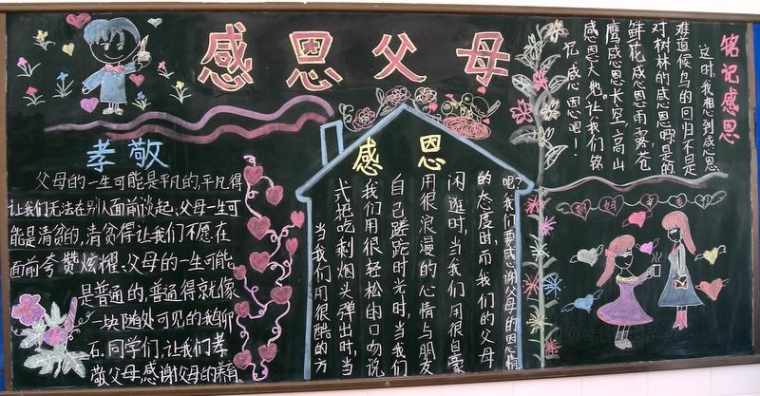 感恩父母
孝敬
父母的一生可能是平凡的,平凡得
让我们无法在别人面前谈起、父母一生可
能是清贫的,清贫得让我们不愿在
面前夸赞炫耀、父母的一生可能
是普通的,普通得就像
一块随处可见的鹅卵
石.同学们,让我们孝
敬父母,感谢父母的养育
感恩
当我们用很酷的方
式把吃剩烟头弹出时,当
我们用很轻松的口吻说
自己蹉跎时光时,当我们
用很浪漫的心情与朋友
闲逛时,当我们用很自豪
的态度时,而我们的父母
吧!我们要感谢父母的恩情
铭记感恩
这时,我想到感恩
难道候鸟的回归不是
对树林的感恩吗?是的
鲜花感恩雨露,苍
鹰感恩长空,高山
感恩大地。让我们铭
记感恩吧!